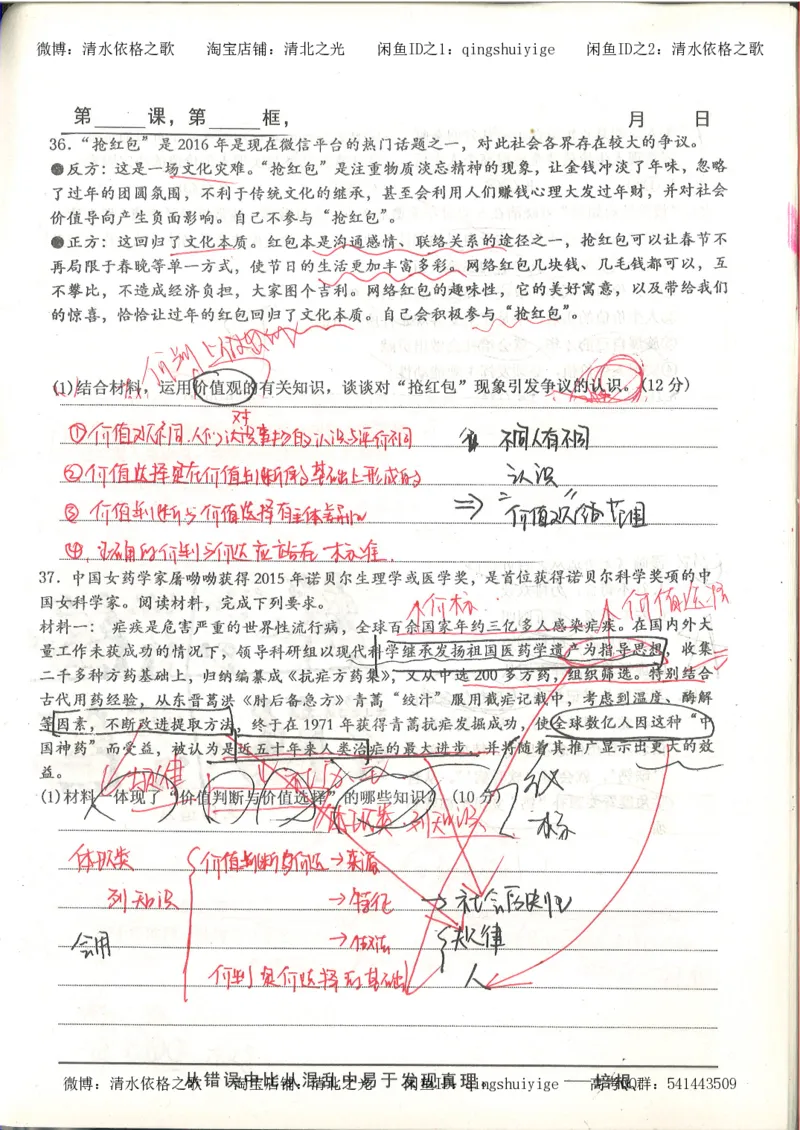 微博：清水依格之歌 淘宝店铺：清北之光 闲鱼ID之1：qingshuiyige 闲鱼ID之2：清水依格之歌
第 课，第 框， 月 日
36．“抢红包”是2016年是现在微信平台的热门话题之一，对此社会各界存在较大的争议。
●反方：这是一场文化灾难。“抢红包”是注重物质淡忘精神的现象，让金钱冲淡了年味，忽略
了过年的团圆氛围，不利于传统文化的继承，甚至会利用人们赚钱心理大发过年财，并对社会
价值导向产生负面影响。自己不参与“抢红包”。
●正方：这回归了文化本质。红包本是沟通感情、联络关系的途径之一，抢红包可以让春节不
再局限于春晚等单一方式，使节日的生活更加丰富多彩。网络红包几块钱、几毛钱都可以，互
不攀比，不造成经济负担，大家图个吉利。网络红包的趣味性，它的美好寓意，以及带给我们
的惊喜，恰恰让过年的红包回归了文化本质。自己会积极参与“抢红包”。
(1)结合材料，运用价值观的有关知识，谈谈对“抢红包”现象引发争议的认识。(12分)
①价值观不同，人们对事物的认识与评价不同
不同人有不同
②价值选择是在价值判断的基础上形成的
认识
③价值判断与价值选择有主体差异性
⇒“价值观”范围
37．中国女药学家屠呦呦获得2015年诺贝尔生理学或医学奖，是首位获得诺贝尔科学奖项的中
国女科学家。阅读材料，完成下列要求。
材料一： 疟疾是危害严重的世界性流行病，全球百余国家年约三亿多人感染疟疾。在国内外大
量工作未获成功的情况下，领导科研组以现代科学继承发扬祖国医药学遗产为指导思想，收集
二千多种方药基础上，归纳编纂成《抗疟方药集》，又从中选200多方药，组织筛选。特别结合
古代用药经验，从东晋葛洪《肘后备急方》青蒿“绞汁”服用截疟记载中，考虑到温度、酶解
等因素，不断改进提取方法，终于在1971年获得青蒿抗疟发掘成功，使全球数亿人因这种“中
国神药”而受益，被认为是近五十年来人类治疟的最大进步，并将随着其推广显示出更大的效
益。
(1)材料一体现了“价值判断与价值选择”的哪些知识？(10分)
体现类 列知识
体现类
列知识
→来源
→特征 → 社会历史性
规律
人
从错误中比从混乱中易于发现真理。 ——培根
微博：清水依格之歌 淘宝店铺：清北之光 闲鱼ID：qingshuiyige 高考QQ群：541443509